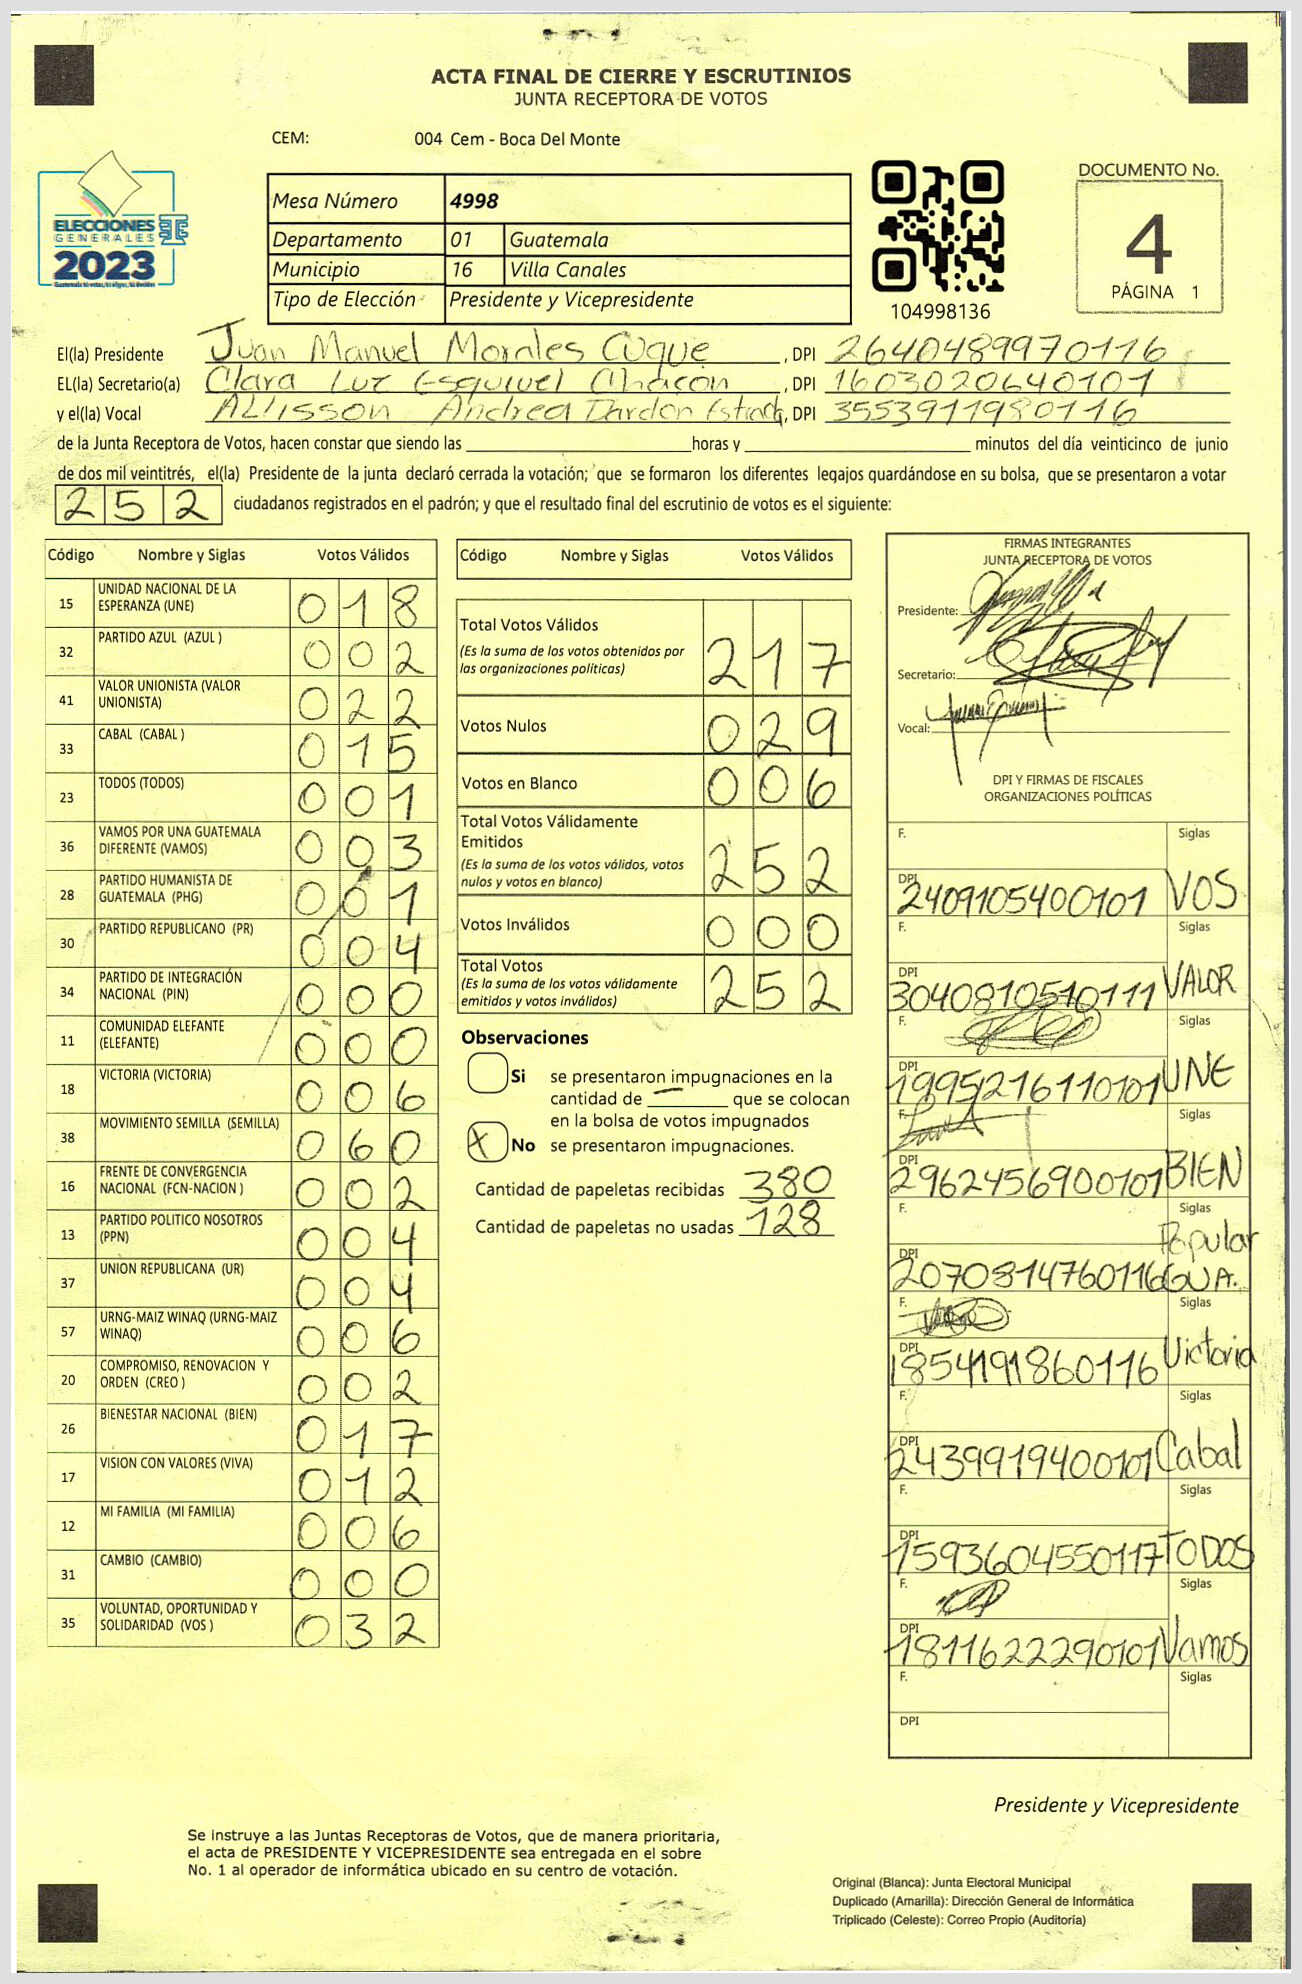 ACTA FINAL DE CIERRE Y ESCRUTINIOS
JUNTA RECEPTORA DE VOTOS
CEM: 004 Cem - Boca Del Monte
ELECCIONES
GENERALES
2023
Mesa Número 4998
Departamento 01 Guatemala
Municipio 16 Villa Canales
Tipo de Elección Presidente y Vicepresidente
104998136
DOCUMENTO No.
4
PÁGINA 1
El(la) Presidente Juan Manuel Morales Cuque, DPI 2640489970116
EL(la) Secretario(a) Clara Luz Esquivel Chacón, DPI 1603020640101
y el(la) Vocal Allisson Andrea Dardon Estrada, DPI 3553911980116
de la Junta Receptora de Votos, hacen constar que siendo las horas y minutos del día veinticinco de junio
de dos mil veintitrés, el(la) Presidente de la junta declaró cerrada la votación; que se formaron los diferentes legajos guardándose en su bolsa, que se presentaron a votar
252 ciudadanos registrados en el padrón; y que el resultado final del escrutinio de votos es el siguiente:
Código Nombre y Siglas Votos Válidos
15 UNIDAD NACIONAL DE LA ESPERANZA (UNE) 018
32 PARTIDO AZUL (AZUL ) 002
41 VALOR UNIONISTA (VALOR UNIONISTA) 022
33 CABAL (CABAL ) 015
23 TODOS (TODOS) 001
36 VAMOS POR UNA GUATEMALA DIFERENTE (VAMOS) 003
28 PARTIDO HUMANISTA DE GUATEMALA (PHG) 001
30 PARTIDO REPUBLICANO (PR) 004
34 PARTIDO DE INTEGRACIÓN NACIONAL (PIN) 000
11 COMUNIDAD ELEFANTE (ELEFANTE) 000
18 VICTORIA (VICTORIA) 006
38 MOVIMIENTO SEMILLA (SEMILLA) 060
16 FRENTE DE CONVERGENCIA NACIONAL (FCN-NACION ) 002
13 PARTIDO POLITICO NOSOTROS (PPN) 004
37 UNION REPUBLICANA (UR) 004
57 URNG-MAIZ WINAQ (URNG-MAIZ WINAQ) 006
20 COMPROMISO, RENOVACION Y ORDEN (CREO ) 002
26 BIENESTAR NACIONAL (BIEN) 017
17 VISION CON VALORES (VIVA) 012
12 MI FAMILIA (MI FAMILIA) 006
31 CAMBIO (CAMBIO) 000
35 VOLUNTAD, OPORTUNIDAD Y SOLIDARIDAD (VOS ) 032
Código Nombre y Siglas Votos Válidos
Total Votos Válidos 217
(Es la suma de los votos obtenidos por
las organizaciones políticas)
Votos Nulos 029
Votos en Blanco 006
Total Votos Válidamente
Emitidos 252
(Es la suma de los votos válidos, votos
nulos y votos en blanco)
Votos Inválidos 000
Total Votos 252
(Es la suma de los votos válidamente
emitidos y votos inválidos)
Observaciones
Si se presentaron impugnaciones en la
cantidad de — que se colocan
en la bolsa de votos impugnados
X No se presentaron impugnaciones.
Cantidad de papeletas recibidas 380
Cantidad de papeletas no usadas 128
FIRMAS INTEGRANTES
JUNTA RECEPTORA DE VOTOS
Presidente:
Secretario:
Vocal:
DPI Y FIRMAS DE FISCALES
ORGANIZACIONES POLÍTICAS
F. Siglas
DPI 2409105400101 VOS
F. Siglas
DPI 3040810510111 VALOR
F. Siglas
DPI 1995216110101 UNE
F. Siglas
DPI 2962456900101 BIEN
F. Siglas
DPI 2070814760116 Popular GUA.
F. Siglas
DPI 1854191860116 Victoria
F. Siglas
DPI 2439919400101 Cabal
F. Siglas
DPI 1593604550117 TODOS
F. Siglas
DPI 1811622290101 Vamos
F. Siglas
DPI
Presidente y Vicepresidente
Se instruye a las Juntas Receptoras de Votos, que de manera prioritaria,
el acta de PRESIDENTE Y VICEPRESIDENTE sea entregada en el sobre
No. 1 al operador de informática ubicado en su centro de votación.
Original (Blanca): Junta Electoral Municipal
Duplicado (Amarilla): Dirección General de Informática
Triplicado (Celeste): Correo Propio (Auditoría)